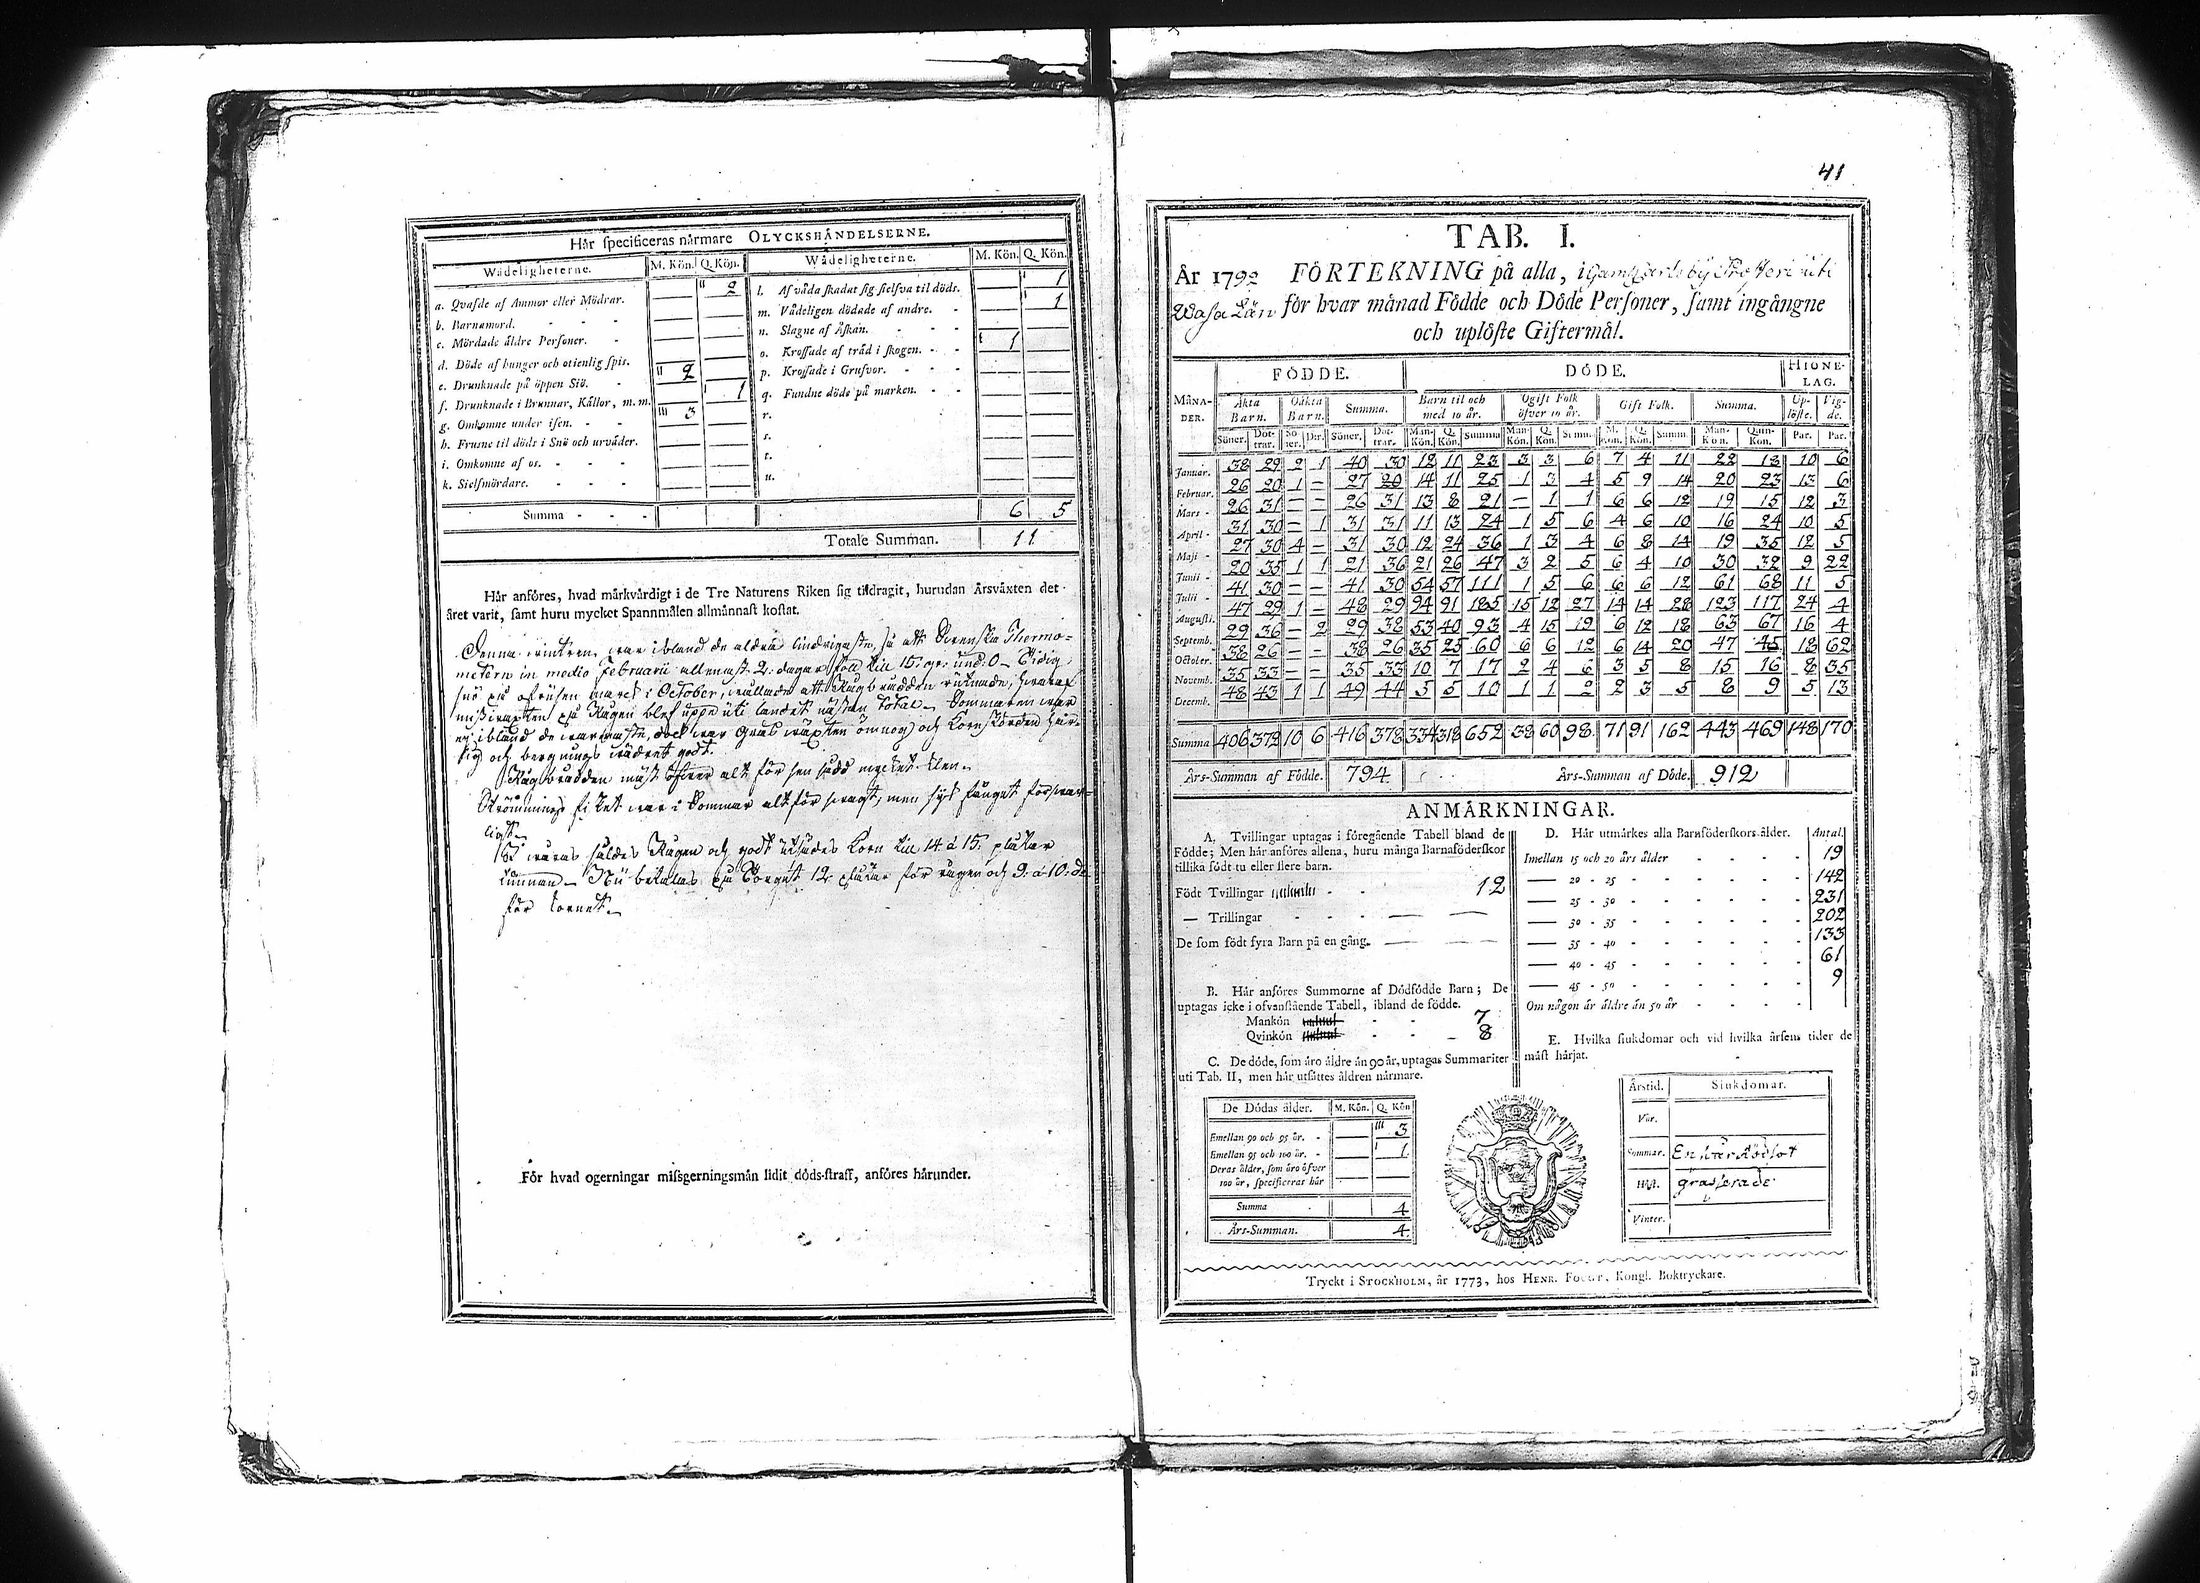 Här specificeras närmare OLYCKSHÄNDELSERNE.
Wådeligheterne. M. Kön. Q. Kön. Wådeligheterne. M. Kön. Q. Kön.
a. Qvafde af Ammor eller Mödrar. 2 l. Af våda skadat sig sielfva til döds. 1
b. Barnamord. m. Vådeligen dödade af andre. 1
c. Mördade äldre Personer. n. Slagne af Åskan.
d. Döde af hunger och otienlig spis. o. Krossade af träd i skogen. 1
e. Drunknade på öppen Siö. 2 p. Krossade i Grufvor.
f. Drunknade i Brunnar, Källor, m. m. 1 q. Fundne döde på marken.
g. Omkomne under isen. 3 r.
h. Frusne til döds i Snö och urväder. s.
i. Omkomne af os. t.
k. Sielfmördare. u.
Summa 6 5
Totale Summan. 11
Här anföres, hvad märkvärdigt i de Tre Naturens Riken sig tildragit, hurudan Årsväxten det
året varit, samt huru mycket Spannmålen allmännast kostat.
Denna wintren war ibland de aldra lindrigaste, så att Swenska Thermo=
metern in medio Februarii allenast 2. dagar föll till 15. gr. und. 0
snö på ofrusen mark i October, wållade att Rågbrodden rutnade, hwaraf
misswäxten på Rågen blef uppe uti landet nästan total. Sommaren war
ej ibland de warmaste, dock war Gräs wäxten ömnog och Kornskörden
och bergnings wädret godt.
Rågbrodden
Strömmings fisket war i Sommar alt för swagt, men
ligt.
I wåras såldes Rågen och godt Korn till 14 á 15. plåtar
tunnan. Nu betalas på Torget 12 plåtar för rågen och 9. á 10. d:o
för Kornet.
För hvad ogerningar missgerningsmän lidit döds-straff, anföres härunder.
41
TAB. I.
År 1792 FÖRTEKNING på alla, i Gamlcarleby Prosteri uti
Wasa Län för hvar månad Födde och Döde Personer, samt ingångne
och uplöste Giftermål.
MÅNADER. FÖDDE. DÖDE. HIONELAG.
Äkta Barn. Oäkta Barn. Summa. Barn til och med 10 år. Ogift Folk öfver 10 år. Gift Folk. Summa. Uplöste. Vigde.
Söner. Döttrar. Söner. Dör. Söner. Döttrar. Man-Kön. Q. Kön. Summa Man-Kön. Q. Kön. Summ. M. Kön. Q. Kön. Summ. Man-Kön. Quin-Kön. Par. Par.
Januar. 38 29 2 1 40 30 12 11 23 3 3 6 7 4 11 22 18 10 6
Februar. 26 20 1 – 27 20 14 11 25 1 3 4 5 9 14 20 23 13 6
Mars - 26 31 – – 26 31 13 8 21 – 1 1 6 6 12 19 15 12 3
April - 31 30 – 1 31 31 11 13 24 1 5 6 4 6 10 16 24 10 5
Maji - 27 30 4 – 31 30 12 24 36 1 3 4 6 8 14 19 35 12 5
Junii - 20 35 1 1 21 36 21 26 47 3 2 5 6 4 10 30 32 9 22
Julii - 41 30 – – 41 30 54 57 111 1 5 6 6 6 12 61 68 11 5
Augusti. 47 29 1 – 48 29 94 91 185 15 12 27 14 14 28 123 117 24 4
Septemb. 29 36 – 2 29 38 53 40 93 4 15 19 6 12 18 63 67 16 4
October. 38 26 – – 38 26 35 25 60 6 6 12 6 14 20 47 45 18 62
Novemb. 35 33 – – 35 33 10 7 17 2 4 6 3 5 8 15 16 8 35
Decemb. 48 43 1 1 49 44 5 5 10 1 1 2 2 3 5 8 9 5 13
Summa 406 372 10 6 416 378 334 318 652 38 60 98 71 91 162 443 469 148 170
Års-Summan af Födde. 794. Års-Summan af Döde. 912
ANMÄRKNINGAR.
A. Tvillingar uptagas i föregående Tabell bland de
Födde; Men här anföres allena, huru många Barnaföderskor
tillika födt tu eller flere barn.
Födt Tvillingar 12
— Trillingar
De som födt fyra Barn på en gång.
B. Här anföres Summorne af Dödfödde Barn; De
uptagas icke i ofvanstående Tabell, ibland de födde.
Mankön 7
Qvinkön 8
C. De döde, som äro äldre än 90 år, uptagas Summariter
uti Tab. II, men här utsättes åldren närmare.
De Dödas ålder. M. Kön. Q. Kön
Emellan 90 och 95 år. 3
Emellan 95 och 100 år. 1
Deras ålder, som äro öfver
100 år, specificeras här
Summa 4
Års-Summan. 4.
D. Här utmärkes alla Barnföderskors ålder. Antal.
Imellan 15 och 20 års ålder 19
— 20 - 25 142
— 25 - 30 231
— 30 - 35 202
— 35 - 40 133
— 40 - 45 61
— 45 - 50 9
Om någon är äldre än 50 år
E. Hvilka siukdomar och vid hvilka årsens tider de
mäst härjat.
Årstid. Siukdomar.
Vår.
Sommar. Enkær Rödsot
Höst. grasserade
Vinter.
Tryckt i STOCKHOLM, år 1773, hos HENR. FOUGT, Kongl. Boktryckare.